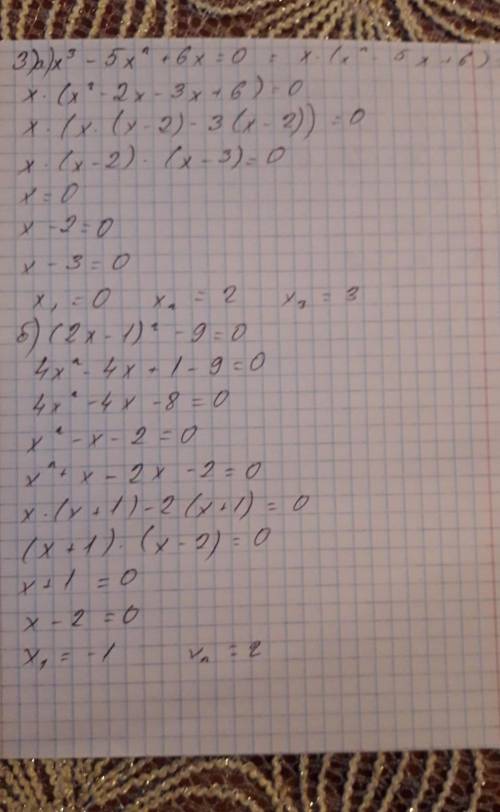 3)а) x³ - 5x² + 6x = 0 = x · (x² - 5x + 6)
x · (x² - 2x - 3x + 6) = 0
x · (x · (x - 2) - 3(x - 2)) = 0
x · (x - 2) · (x - 3) = 0
x = 0
x - 2 = 0
x - 3 = 0
x₁ = 0 x₂ = 2 x₃ = 3
б) (2x - 1)² - 9 = 0
4x² - 4x + 1 - 9 = 0
4x² - 4x - 8 = 0
x² - x - 2 = 0
x² + x - 2x - 2 = 0
x · (x + 1) - 2(x + 1) = 0
(x + 1) · (x - 2) = 0
x + 1 = 0
x - 2 = 0
x₁ = -1 x₂ = 2